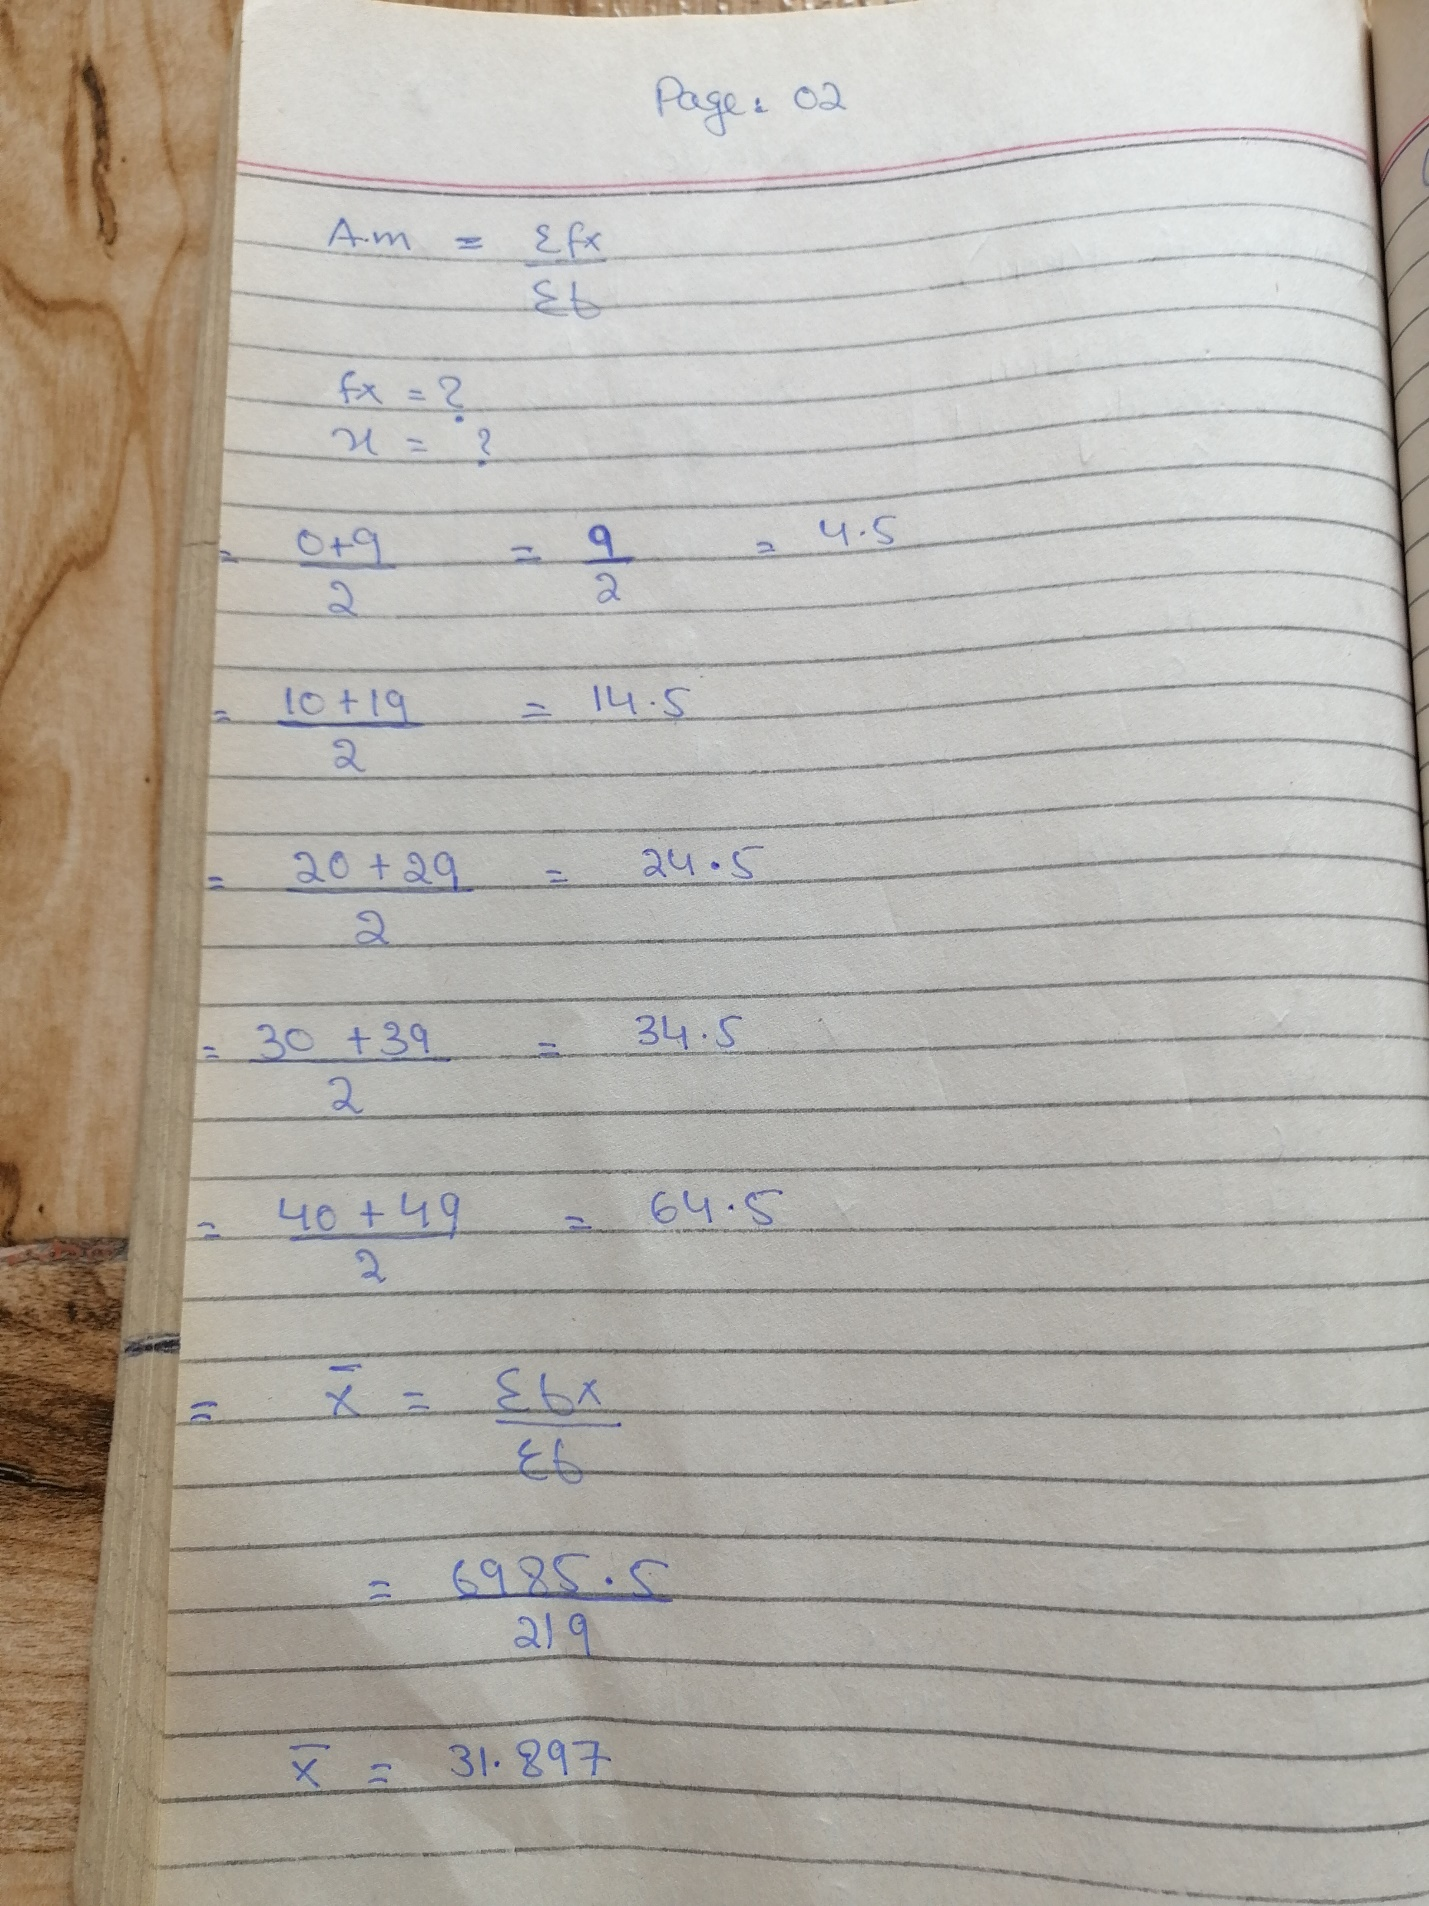 Page: 02
A.m = Σfx
Σf
fx = ?
x = ?
= 0+9 = 9 = 4.5
2 2
= 10+19 = 14.5
2
= 20+29 = 24.5
2
= 30+39 = 34.5
2
= 40+49 = 64.5
2
= x̄ = Σfx
Σf
= 6985.5
219
x̄ = 31.897